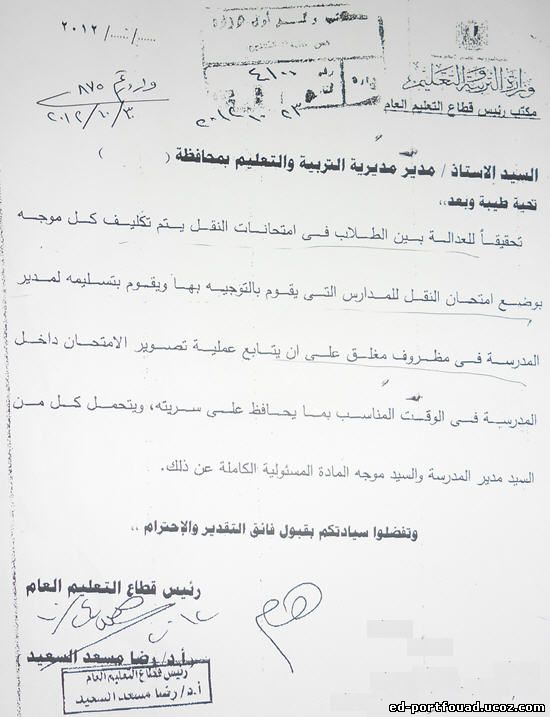 ٢٠١٢ /...../.....
وزارة التربية والتعليم
مكتب رئيس قطاع التعليم العام
٤١٠٠
وارد رقم ٨٧٥
٢٠١٢/١٠/٣٠
٢٣
السيد الاستاذ / مدير مديرية التربية والتعليم بمحافظة ( )
تحية طيبة وبعد،،
تحقيقاً للعدالة بين الطلاب فى امتحانات النقل يتم تكليف كل موجه
بوضع امتحان النقل للمدارس التى يقوم بالتوجيه بها ويقوم بتسليمه لمدير
المدرسة فى مظروف مغلق على ان يتابع عملية تصوير الامتحان داخل
المدرسة فى الوقت المناسب بما يحافظ على سريته، ويتحمل كل من
السيد مدير المدرسة والسيد موجه المادة المسئولية الكاملة عن ذلك.
وتفضلوا سيادتكم بقبول فائق التقدير والإحترام ،،
رئيس قطاع التعليم العام
أ.د/ رضا مسعد السعيد
رئيس قطاع التعليم العام
أ.د/ رضا مسعد السعيد
ed-portfouad.ucoz.com